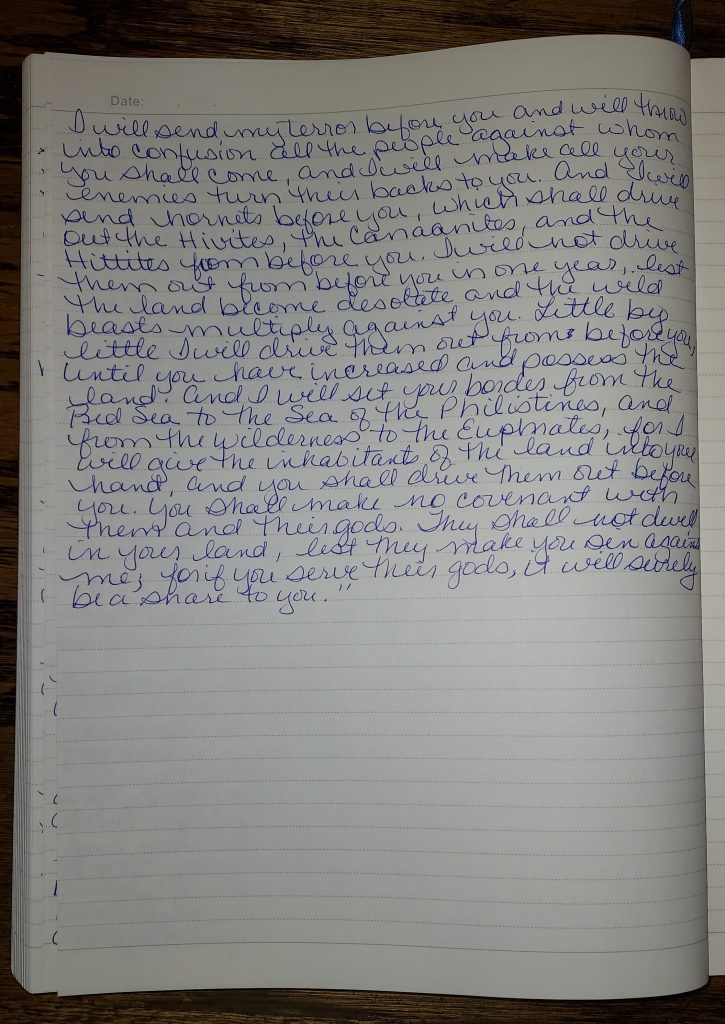 Date:
I will send my terror before you and will throw
into confusion all the people against whom
you shall come, and I will make all your
enemies turn their backs to you. And I will
send hornets before you, which shall drive
out the Hivites, the Canaanites, and the
Hittites from before you. I will not drive
them out from before you in one year, lest
the land become desolate and the wild
beasts multiply against you. Little by
little I will drive them out from before you,
until you have increased and possess the
land. And I will set your border from the
Red Sea to the Sea of the Philistines, and
from the wilderness to the Euphrates, for I
will give the inhabitants of the land into your
hand, and you shall drive them out before
you. You shall make no covenant with
them and their gods. They shall not dwell
in your land, lest they make you sin against
me; for if you serve their gods, it will surely
be a snare to you."